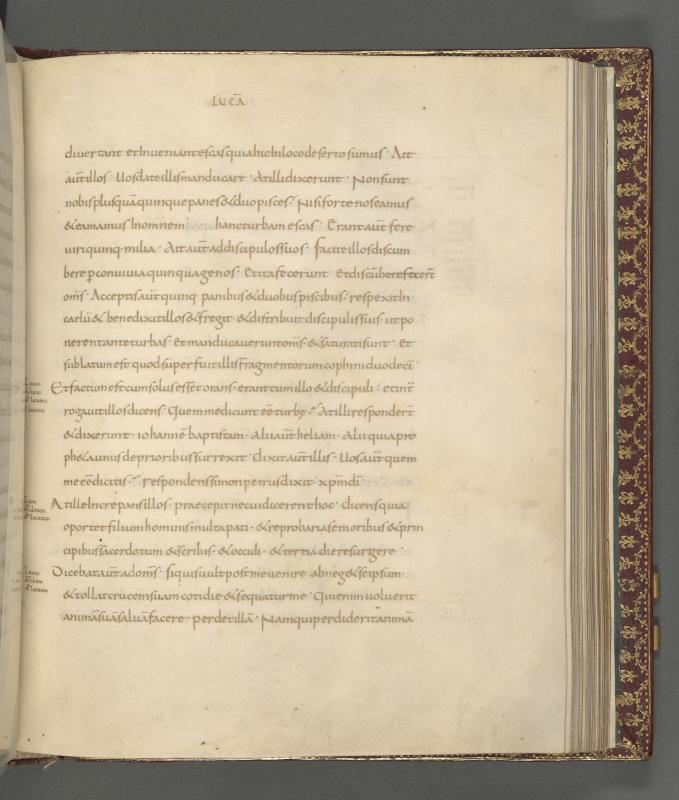 LUCĀ
divertant et Inveniant escas quia hic In loco deserto sumus · Ait
aūt illos · Uos date illis manducare · At illi dixerunt · Non sunt
nobis plus quā quinque panes & duo pisces · Nisi forte nos eamus
& eamamus In omnem hanc turbam escas · Erant aūt fere
uiri quinq· milia · Ait aūt ad discipulos suos · facite illos discum
bere p conuiuia quinquagenos · Et ita fecerunt Et discūbere fecert̄
om̄s · Acceptis aūt quinq· panibus & duobus piscibus · respexit In
caelū & benedixit illos & fregit · & distribuit discipulis suis · ut po
nerent ante turbas · Et manducauerunt om̄s · & saturati sunt · Et
sublatum est quod superfuit illis fragmentorum cophini duodecī ·
Et factum est cum solus esset orans · erant cum illo & discipuli · et int̄
rogauit illos dicens · Quem me dicunt eē turbę · At illi responder̄t
& dixerunt · iohannē baptistam · Alii aūt heliam · Alii quia pro
ph&a unus de prioribus surrexit · Dixit aūt illis · Uos aūt quem
me eē dicitis · respondens simon petrus dixit · xp̄m dī
At ille Increpans illos · praecepit ne cui dicerent hoc · dicens quia
oportet filium hominis multa pati · & reprobari a senioribus & prin
cipibus sacerdotum & scribis · & occidi · & tertia die resurgere ·
Dicebat aūt ad om̄s · Si quis uult post me uenire abneg& se ipsum ·
& tollat crucem suam cotidie & sequatur me · Qui enim uoluerit
animā suā saluā facere · perdet illā · Nam qui perdiderit animā